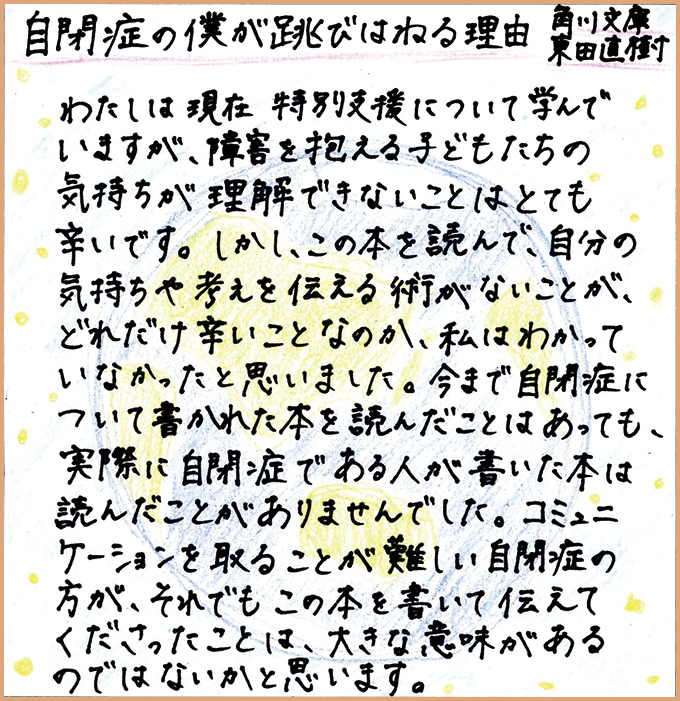 自閉症の僕が跳びはねる理由
角川文庫
東田直樹
わたしは現在 特別支援について学んで
いますが、障害を抱える子どもたちの
気持ちが理解できないことはとても
辛いです。しかし、この本を読んで、自分の
気持ちや考えを伝える術がないことが、
どれだけ辛いことなのか、私はわかって
いなかったと思いました。今まで自閉症に
ついて書かれた本を読んだことはあっても、
実際に自閉症である人が書いた本は
読んだことがありませんでした。コミュニ
ケーションを取ることが難しい自閉症の
方が、それでもこの本を書いて伝えて
くださったことは、大きな意味がある
のではないかと思います。